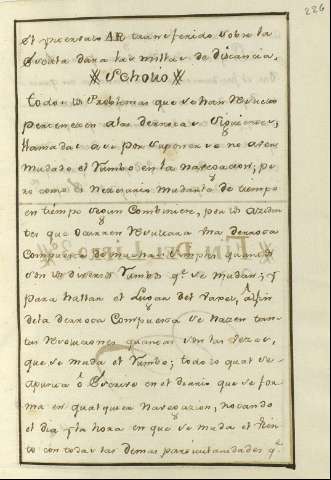 226
el presentado AR transferido sobre la
Escala dara las millas de distancia.
Scholio
todos los Problemas que se han Resuelto
pertenecen a las derrotas
llamadas asi por suponerse no aver
mudado el Rumbo en la navegacion; pe
ro como es Necesario mudarlo de tiempo
en tiempo segun Combiniere, por los axiden
tes que ocurren Resultara una derrota
Compuesta de muchas simples quantos
son los diversos Rumbos q.e se mudan; y
para hallar el Lugar del Navio, al fin
de la derrota Compuesta se hazen tan
tas Resoluciones quantas son las vezes,
que se muda el Rumbo; todo lo qual se
apunta ô en el diario que se for
ma en qualquiera Navegazion, notando
el dia y la hora en que se muda el
to con todas las demas particularidades q.e